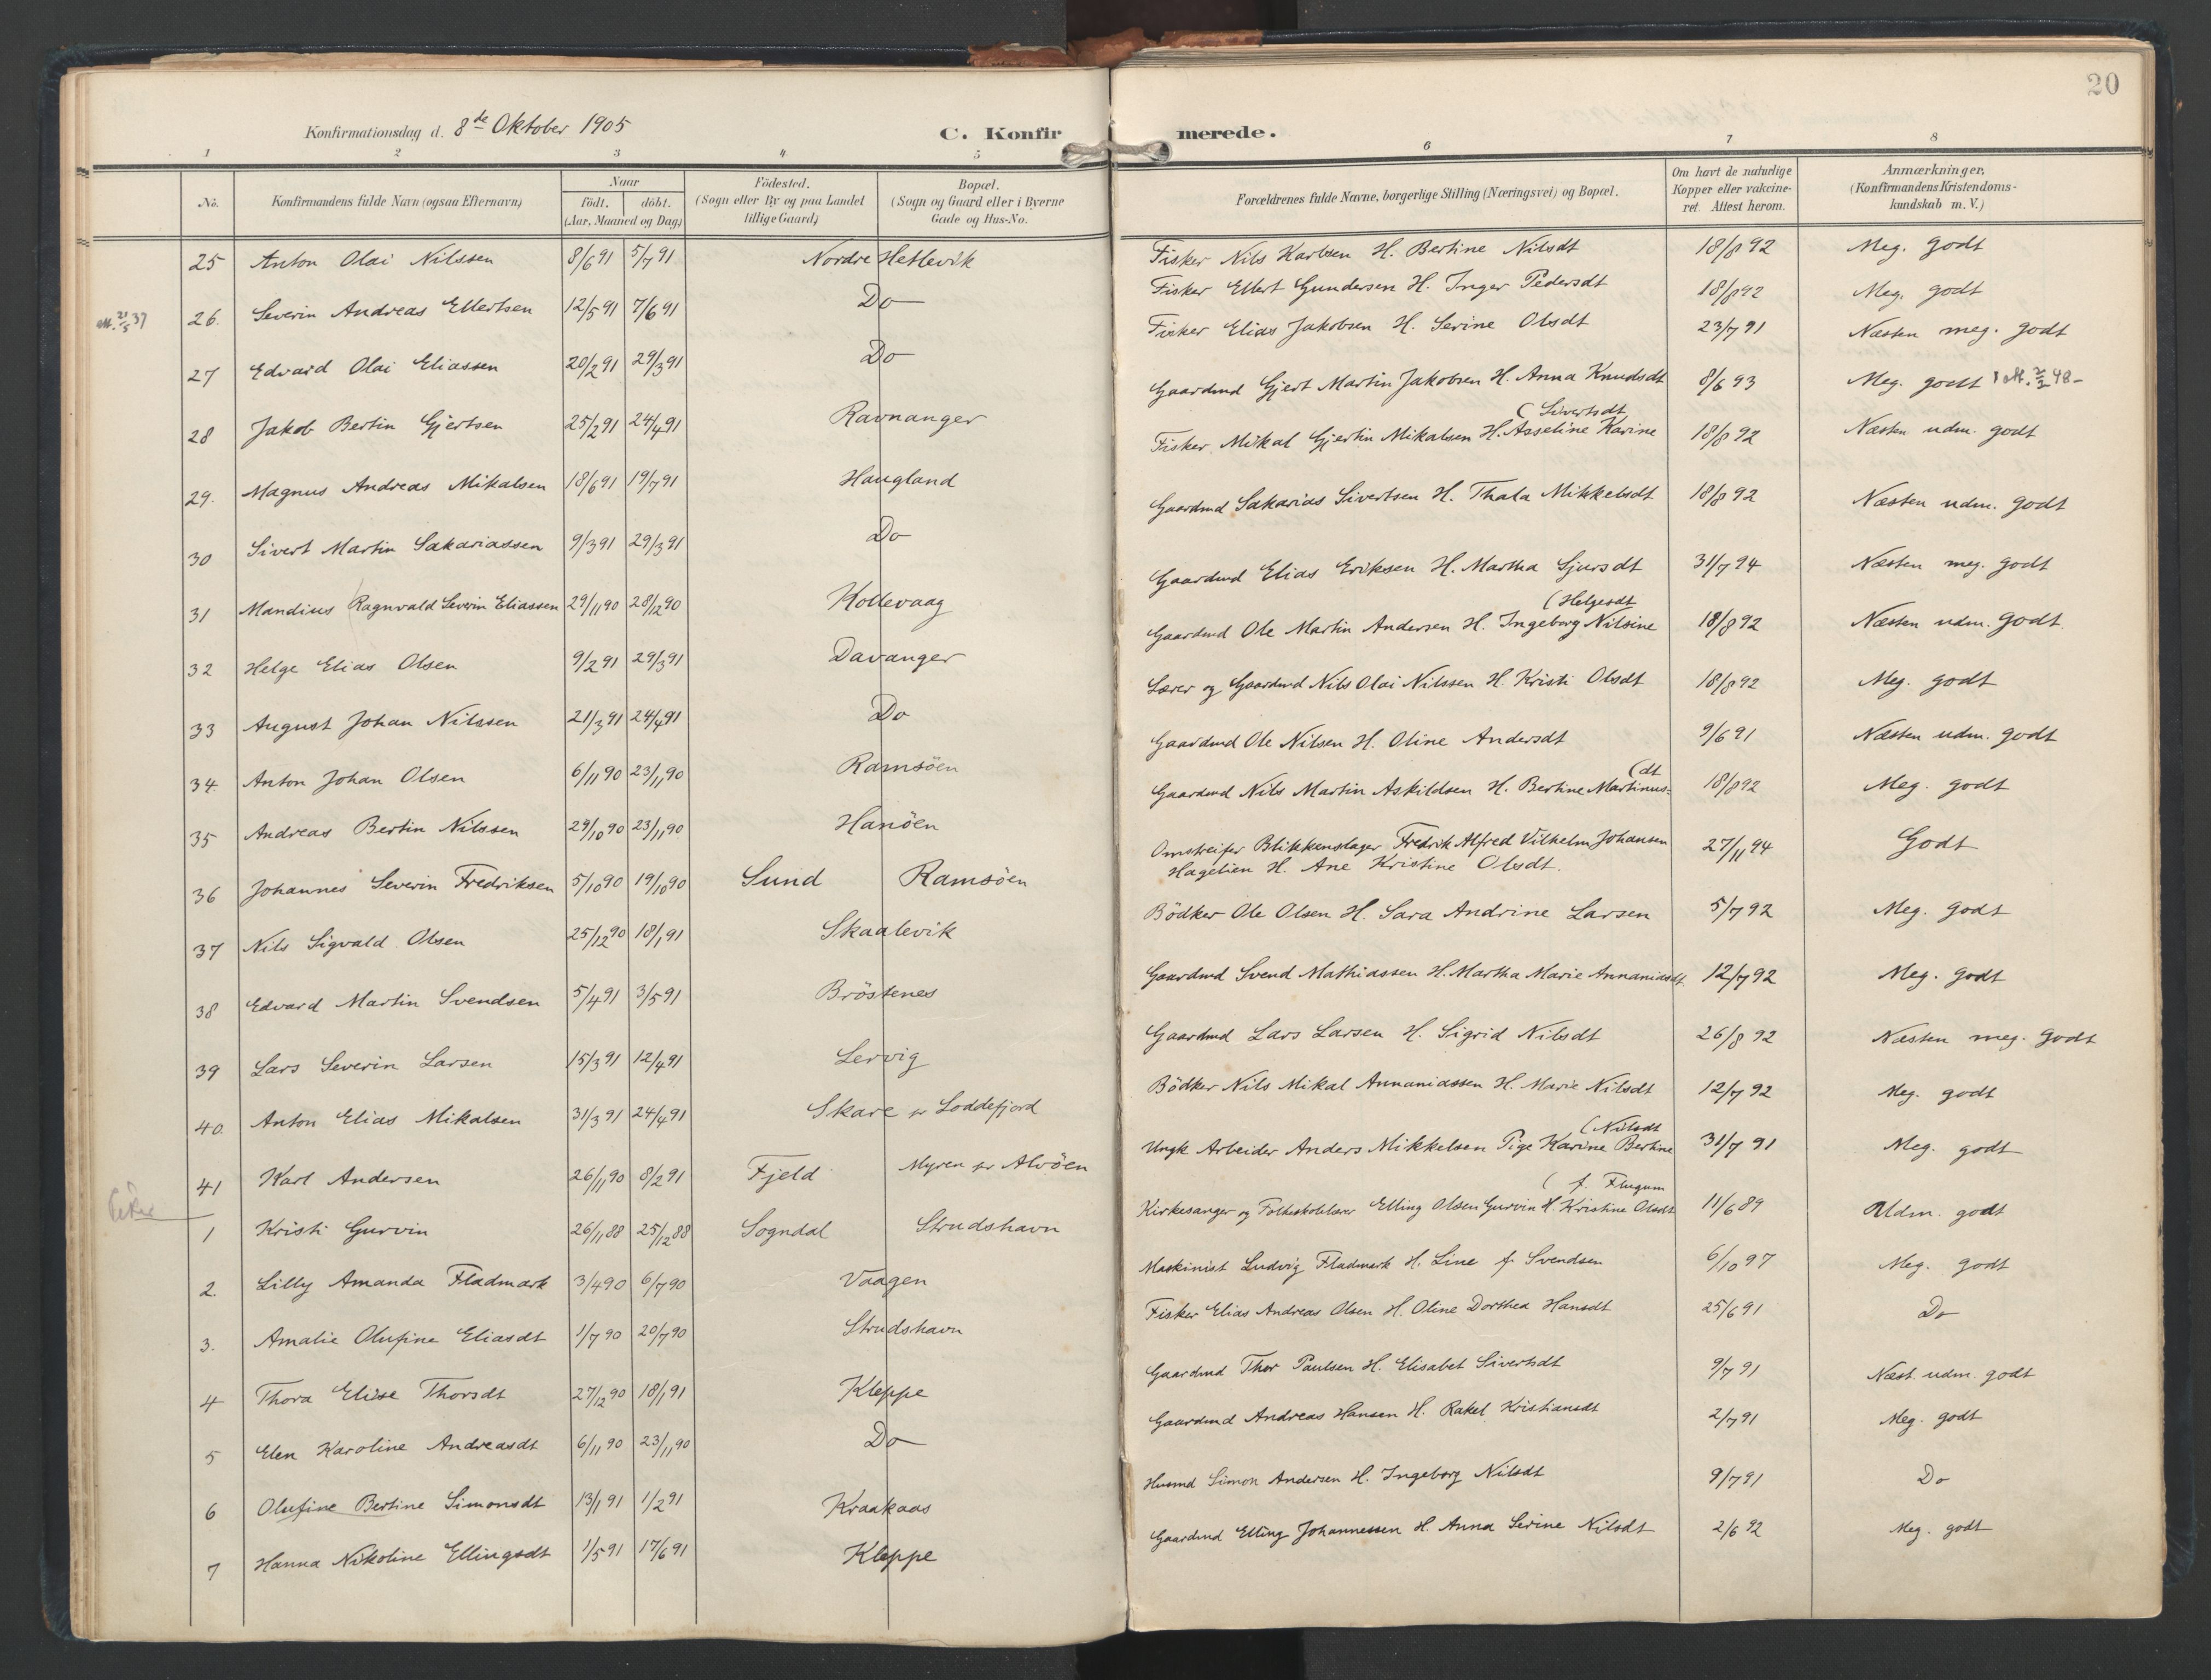 20
Konfirmationsdag d. 8de Oktober 1905
C. Konfirmerede.
1 2 3 4 5 6 7 8
No. Konfirmandens fulde Navn (ogsaa Efternavn) Naar født. døbt. (Aar, Maaned og Dag) Födested. (Sogn eller By og paa Landet tillige Gaard) Bopæl. (Sogn og Gaard eller i Byerne Gade og Hus-No. Forældrenes fulde Navne, borgerlige Stilling (Næringsvei) og Bopæl. Om havt de naturlige Kopper eller vakcineret. Attest herom. Anmærkninger. (Konfirmandens Kristendomskundskab m. V.)
25 Anton Olai Nilssen 8/6 91 5/7 91 Nordre Hetlevik Fisker Nils Karlsen H. Bertine Nilsdt 18/8 92 Meg. godt
26. Severin Andreas Ellertsen 12/5 91 7/6 91 Do Fisker Ellert Gundersen H. Inger Pedersdt 18/8 92 Meg. godt
27 Edvard Olai Eliassen 20/2 91 29/3 91 Do Fisker Elias Jakobsen H. Serine Olsdt 23/7 91 Næsten meg. godt
28 Jakob Bertin Gjertsen 25/2 91 24/4 91 Ravnanger Gaardmd Gjert Martin Jakobsen H. Anna Knudsdt 8/6 93 Meg. godt
29. Magnus Andreas Mikalsen 18/6 91 19/7 91 Haugland Fisker Mikal Gjertin Mikalsen H. Asseline Karine (Sivertsdt 18/8 92 Næsten udm. godt
30 Sivert Martin Sakariassen 9/3 91 29/3 91 Do Gaardmd Sakarias Sivertsen H. Thala Mikkelsdt 18/8 92 Næsten udm. godt
31 Mandius Ragnvald Severin Eliassen 29/11 90 28/12 90 Kollevaag Gaardmd Elias Eriksen H. Martha Sjursdt 31/7 94 Næsten meg. godt
32 Helge Elias Olsen 9/2 91 29/3 91 Davanger Gaardmd Ole Martin Andersen H. Ingeborg Nilsine (Helgesdt 18/8 92 Næsten udm. godt
33 August Johan Nilssen 21/3 91 24/4 91 Do Lærer og Gaardmd Nils Olai Nilssen H. Kristi Olsdt 18/8 92 Meg. godt
34. Anton Johan Olsen 6/11 90 23/11 90 Ramsöen Gaardmd Ole Nilsen H. Oline Andersdt 9/6 91 Næsten udm. godt
35 Andreas Bertin Nilssen 29/10 90 23/11 90 Hanöen Gaardmd Nils Martin Askildsen H. Bertine Martinus= (dt 18/8 92 Meg. godt
36 Johannes Severin Fredriksen 5/10 90 19/10 90 Sund Ramsöen Omstreifer Blikkenslager Fredrik Alfred Vilhelm Johansen
Hagelien H. Ane Kristine Olsdt. 27/11 94 Godt
37 Nils Sigvald Olsen 25/12 90 18/1 91 Skaalevik Bödker Ole Olsen H. Sara Andrine Larsen 5/7 92 Meg. godt
38 Edvard Martin Svendsen 5/4 91 3/5 91 Bröstenes Gaardmd Svend Mathiassen H. Martha Marie Annaniasdt 12/7 92 Meg. godt
39 Lars Severin Larsen 15/3 91 12/4 91 Lervig Gaardmd Lars Larsen H. Sigrid Nilsdt 26/8 92 Næsten meg. godt
40. Anton Elias Mikalsen 31/3 91 24/4 91 Skare pr Loddefjord Bödker Nils Mikal Annaniassen H. Marie Nilsdt 12/7 92 Meg. godt
41 Karl Andersen 26/11 90 8/2 91 Fjeld Myren pr Alvöen Ungk Arbeider Anders Mikkelsen Pige Karine Bertine (Nilsdt 31/7 91 Meg. godt
1 Kristi Gurvin 26/11 88 25/12 88 Sogndal Strudshavn Kirkesanger og Folkeskolelærer Elling Olsen Gurvin H. Kristine Olsdt (f. Flugum 11/6 89 Udm. godt
2 Lilly Amanda Fladmark 3/4 90 6/7 90 Vaagen Maskinist Ludvig Fladmark H. Line f. Svendsen 6/10 97 Meg. godt
3. Amalie Olufine Eliasdt 1/7 90 20/7 90 Strudshavn Fisker Elias Andreas Olsen H. Oline Dorthea Hansdt 25/6 91 Do
4 Thora Elise Thorsdt 27/12 90 18/1 91 Kleppe Gaardmd Thor Paulsen H. Elisabet Sivertsdt 9/7 91 Næst udm. godt
5 Elen Karoline Andreasdt 6/11 90 23/11 90 Do Gaardmd Andreas Hansen H. Rakel Kristiansdt 2/7 91 Meg. godt
6 Olufine Bertine Simonsdt 13/1 91 1/2 91 Kraakaas Husmd Simon Andersen H. Ingeborg Nilsdt 9/7 91 Do
7 Hanna Nikoline Ellingsdt 1/5 91 17/6 91 Kleppe Gaardmd Elling Johannessen H. Anna Serine Nilsdt 2/6 92 Meg. godt